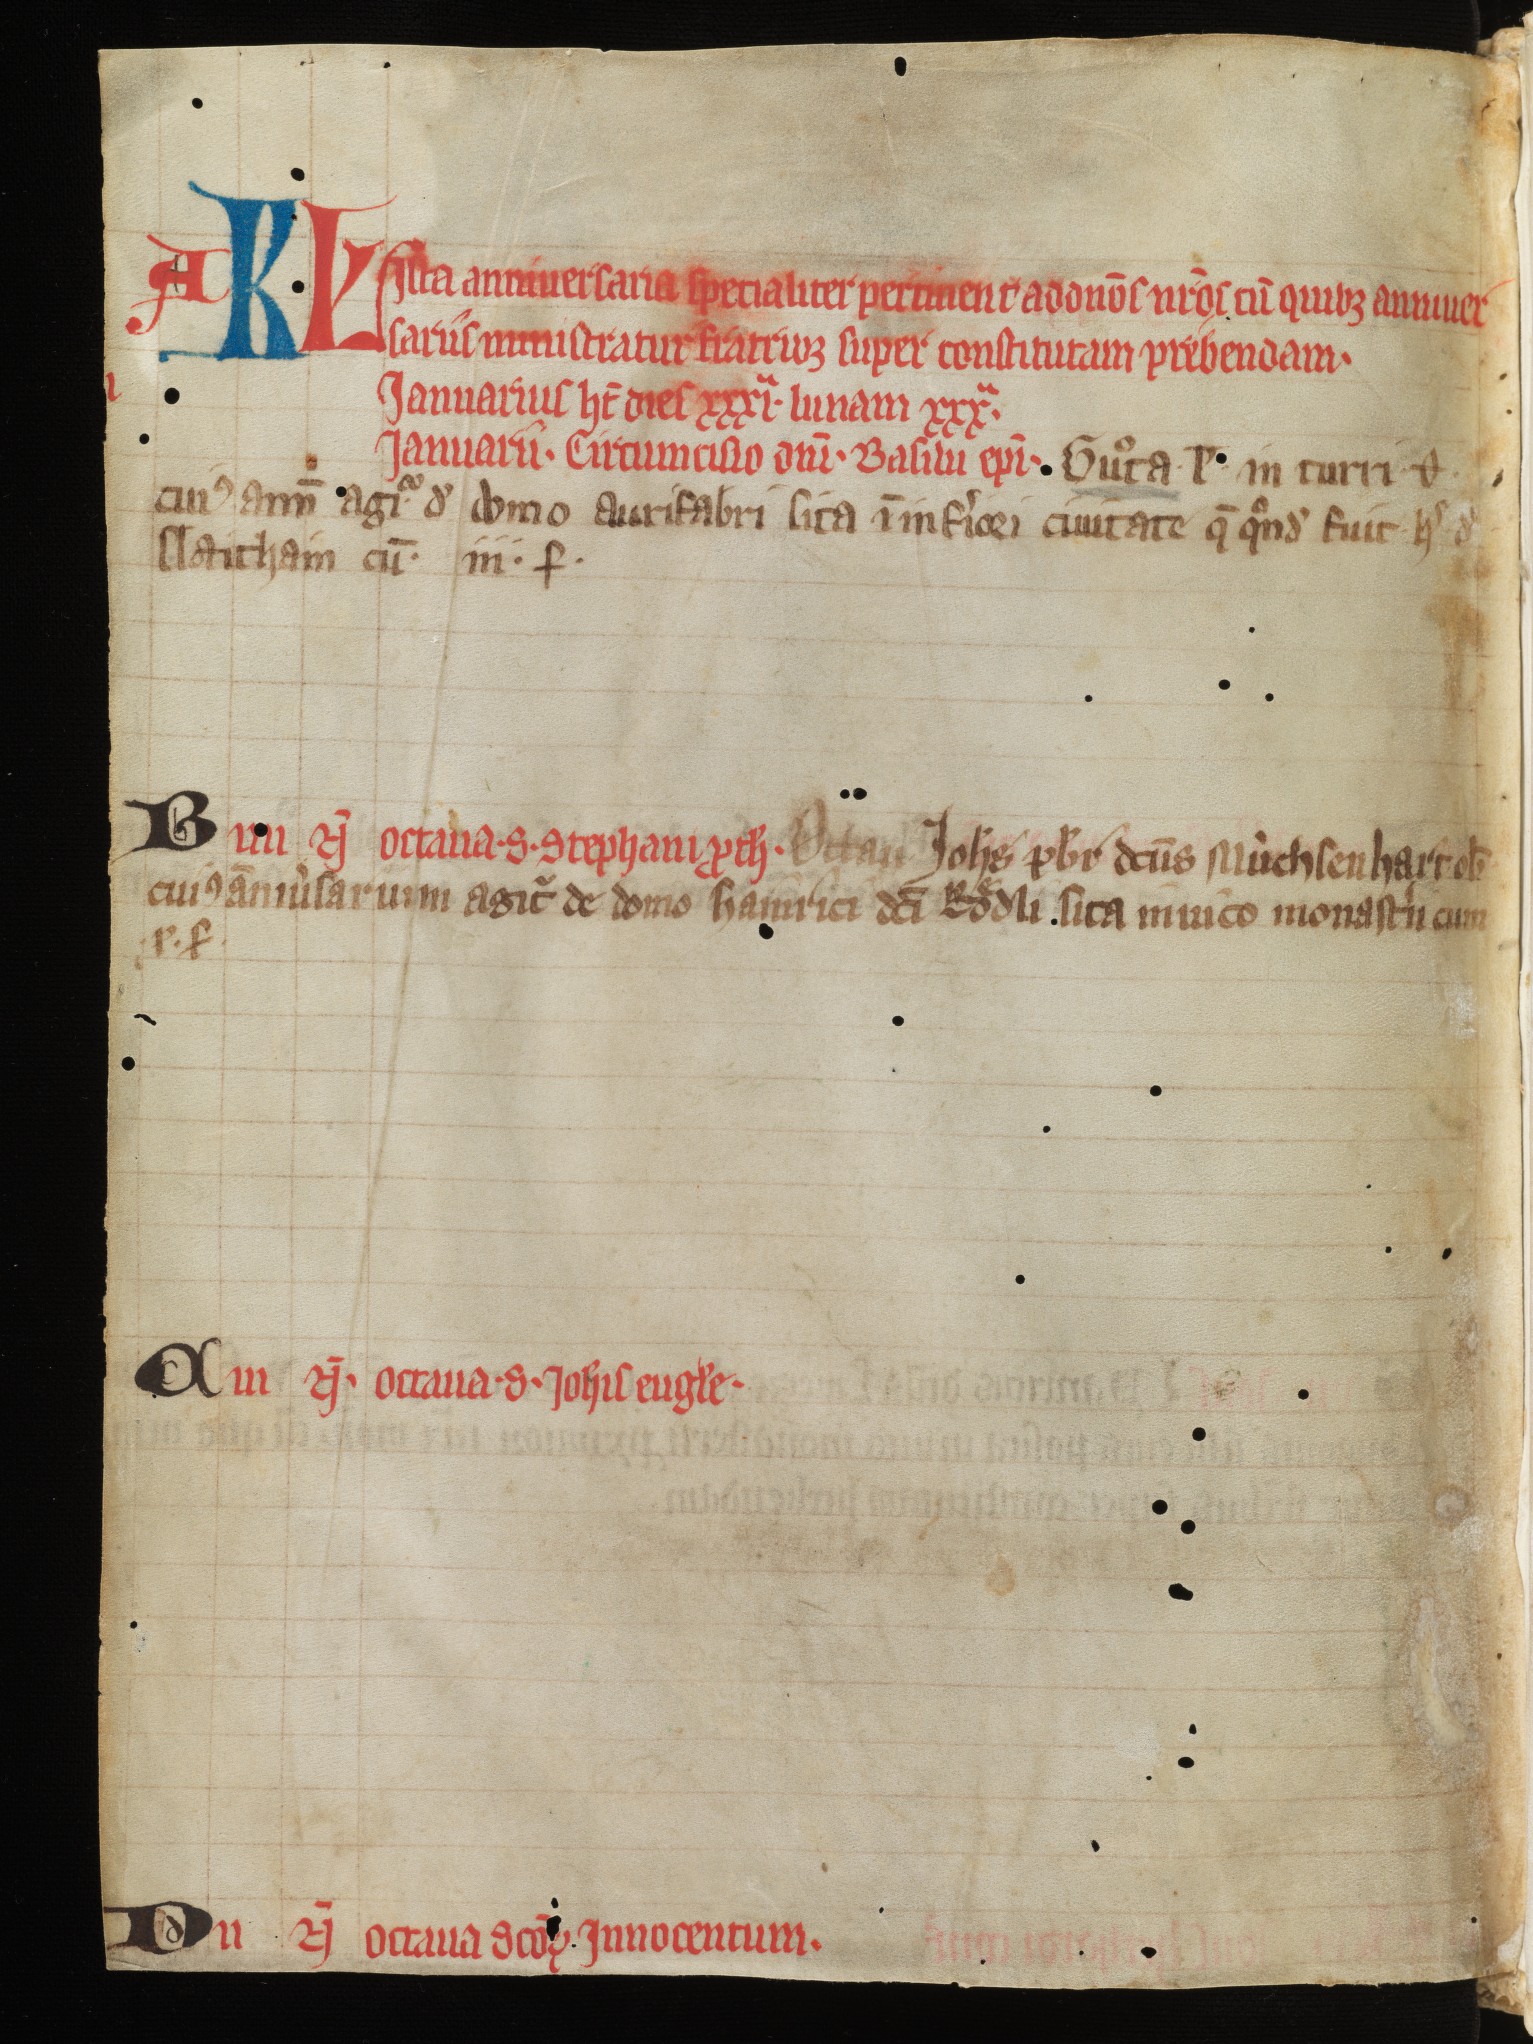 A KL Ista anniuersaria specialiter pertinent ad dnōs nr̄os cū quibꝫ anniuer
sariis ministratur fratribꝫ super constitutam prebendam.
Januarius ht̄ dies xxxi. lunam xxx.
Januarii. Circumcisio dnī. Basilii epī. Gůta in turri
cuiꝰ ann̄ agit᷑ d̓ domo aurifabri sita ī inferiori ciuitate q̄ qͦnd̓ fuit h̓ d̓
Slaitham cū iii. ſ.
B iiii N̄ octaua. S. Stephani ꝓth̄. Johs̄ pbr̄ dcūs Mùchsenhart ob̄
cuiꝰ ān̄iu̓sarium agit᷑ de domo hainrici dcī Rǒdli sita in uico monast̓ii cum
v. ſ.
C iii N̄. octaua. S. Joh̄is eug̓le.
D ii N̄ octaua Scōꝝ Innocentum.